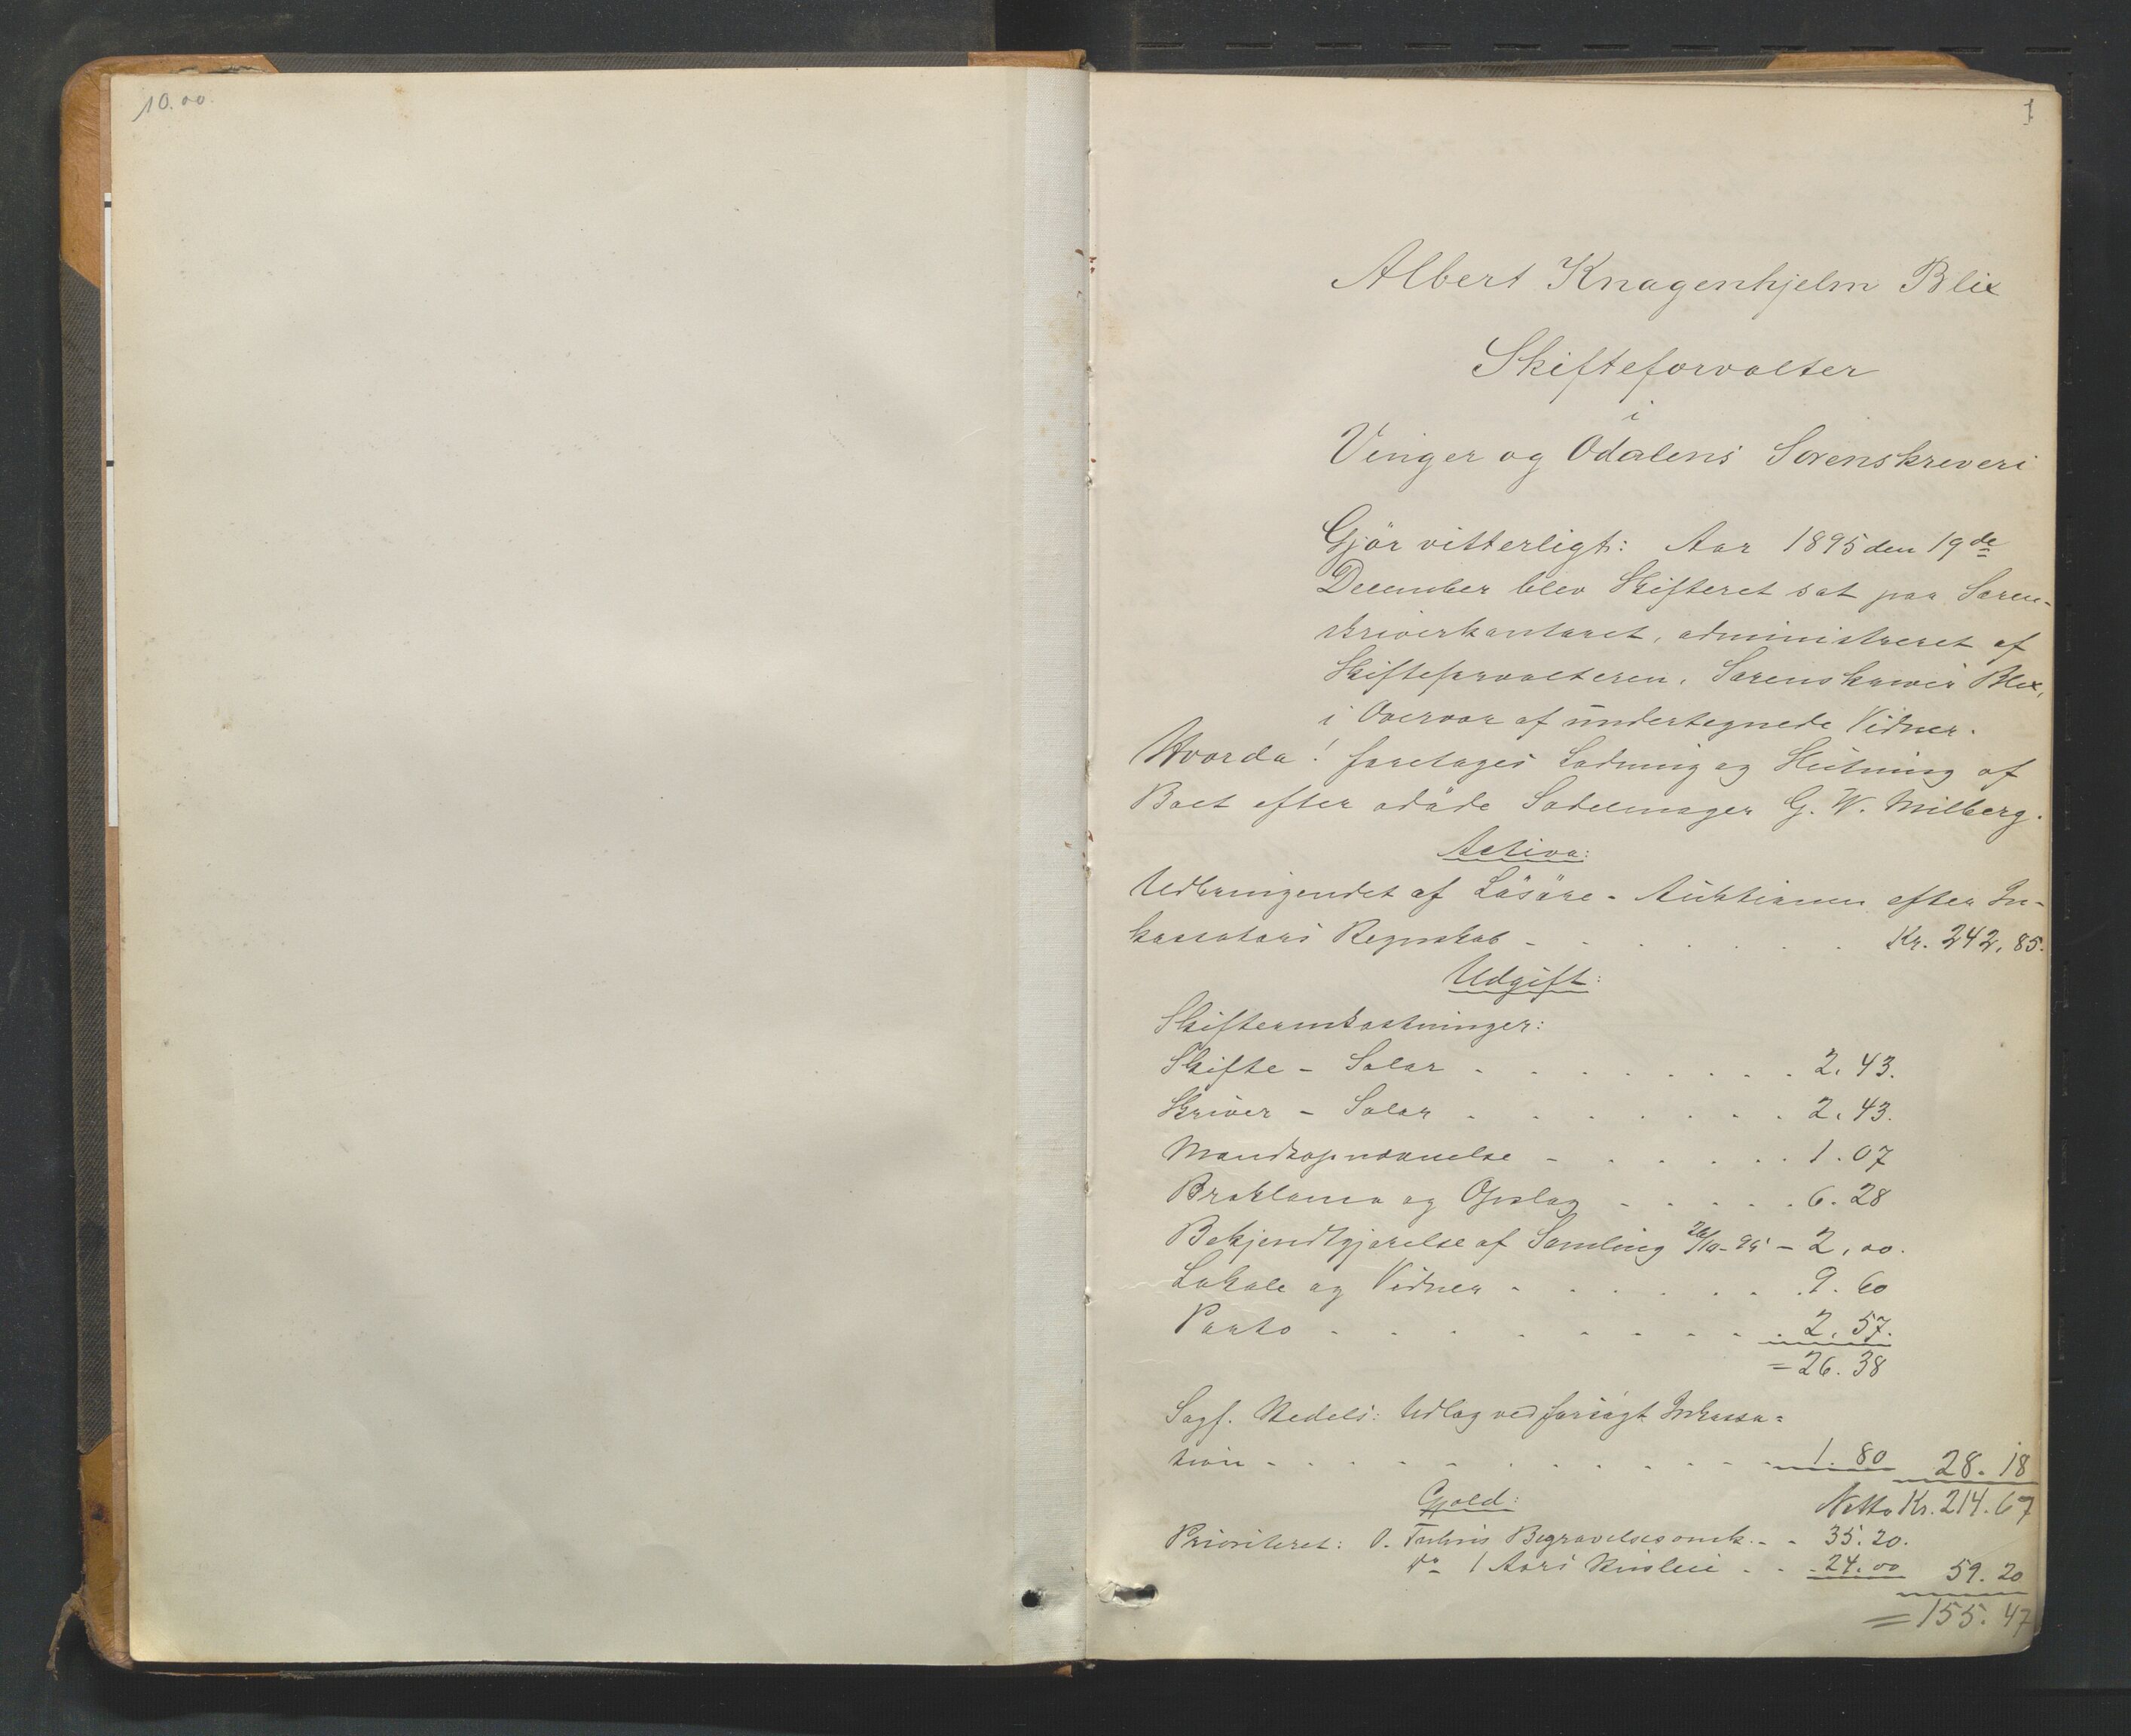 10.00.
1
Albert Knagenhjelm Blix
Skifteforvalter
i
Vinger og Odalens Sorenskriveri
Gjör vitterligt: Aar 1895 den 19de
December blev Skifteret sat paa Soren-
skriverkontoret, administreret af
Skifteforvalteren, Sorenskriver Blix,
i Overvær af undertegnede Vidner.
Hvorda! foretoges Lodning og Slutning af
Boet efter afdöde Sadelmager G. W. Milberg.
Activa:
Udbringendet af Lösöre-Auktionen efter In-
kassators Regnskab - Kr. 242,85.
Udgift:
Skifteomkostninger:
Skifte-Salær 2.43.
Skriver-Salær 2.43.
Mandsopnævnelse - 1.07
Proklama og Opslag 6.28
Bekjendtgjørelse af Samling - 2,00.
Lokale og Vidner 9.60
Porto 2,57.
= 26.38
Sagf. Udlæg ved forsögt Inkassa=
tion 1.80 28.18
Gjæld: Netto Kr. 214.67
Prioriteret: O. Begravelsesomk. - 35.20.
do 1 Aars Husleie 24.00 59.20
= 155.47